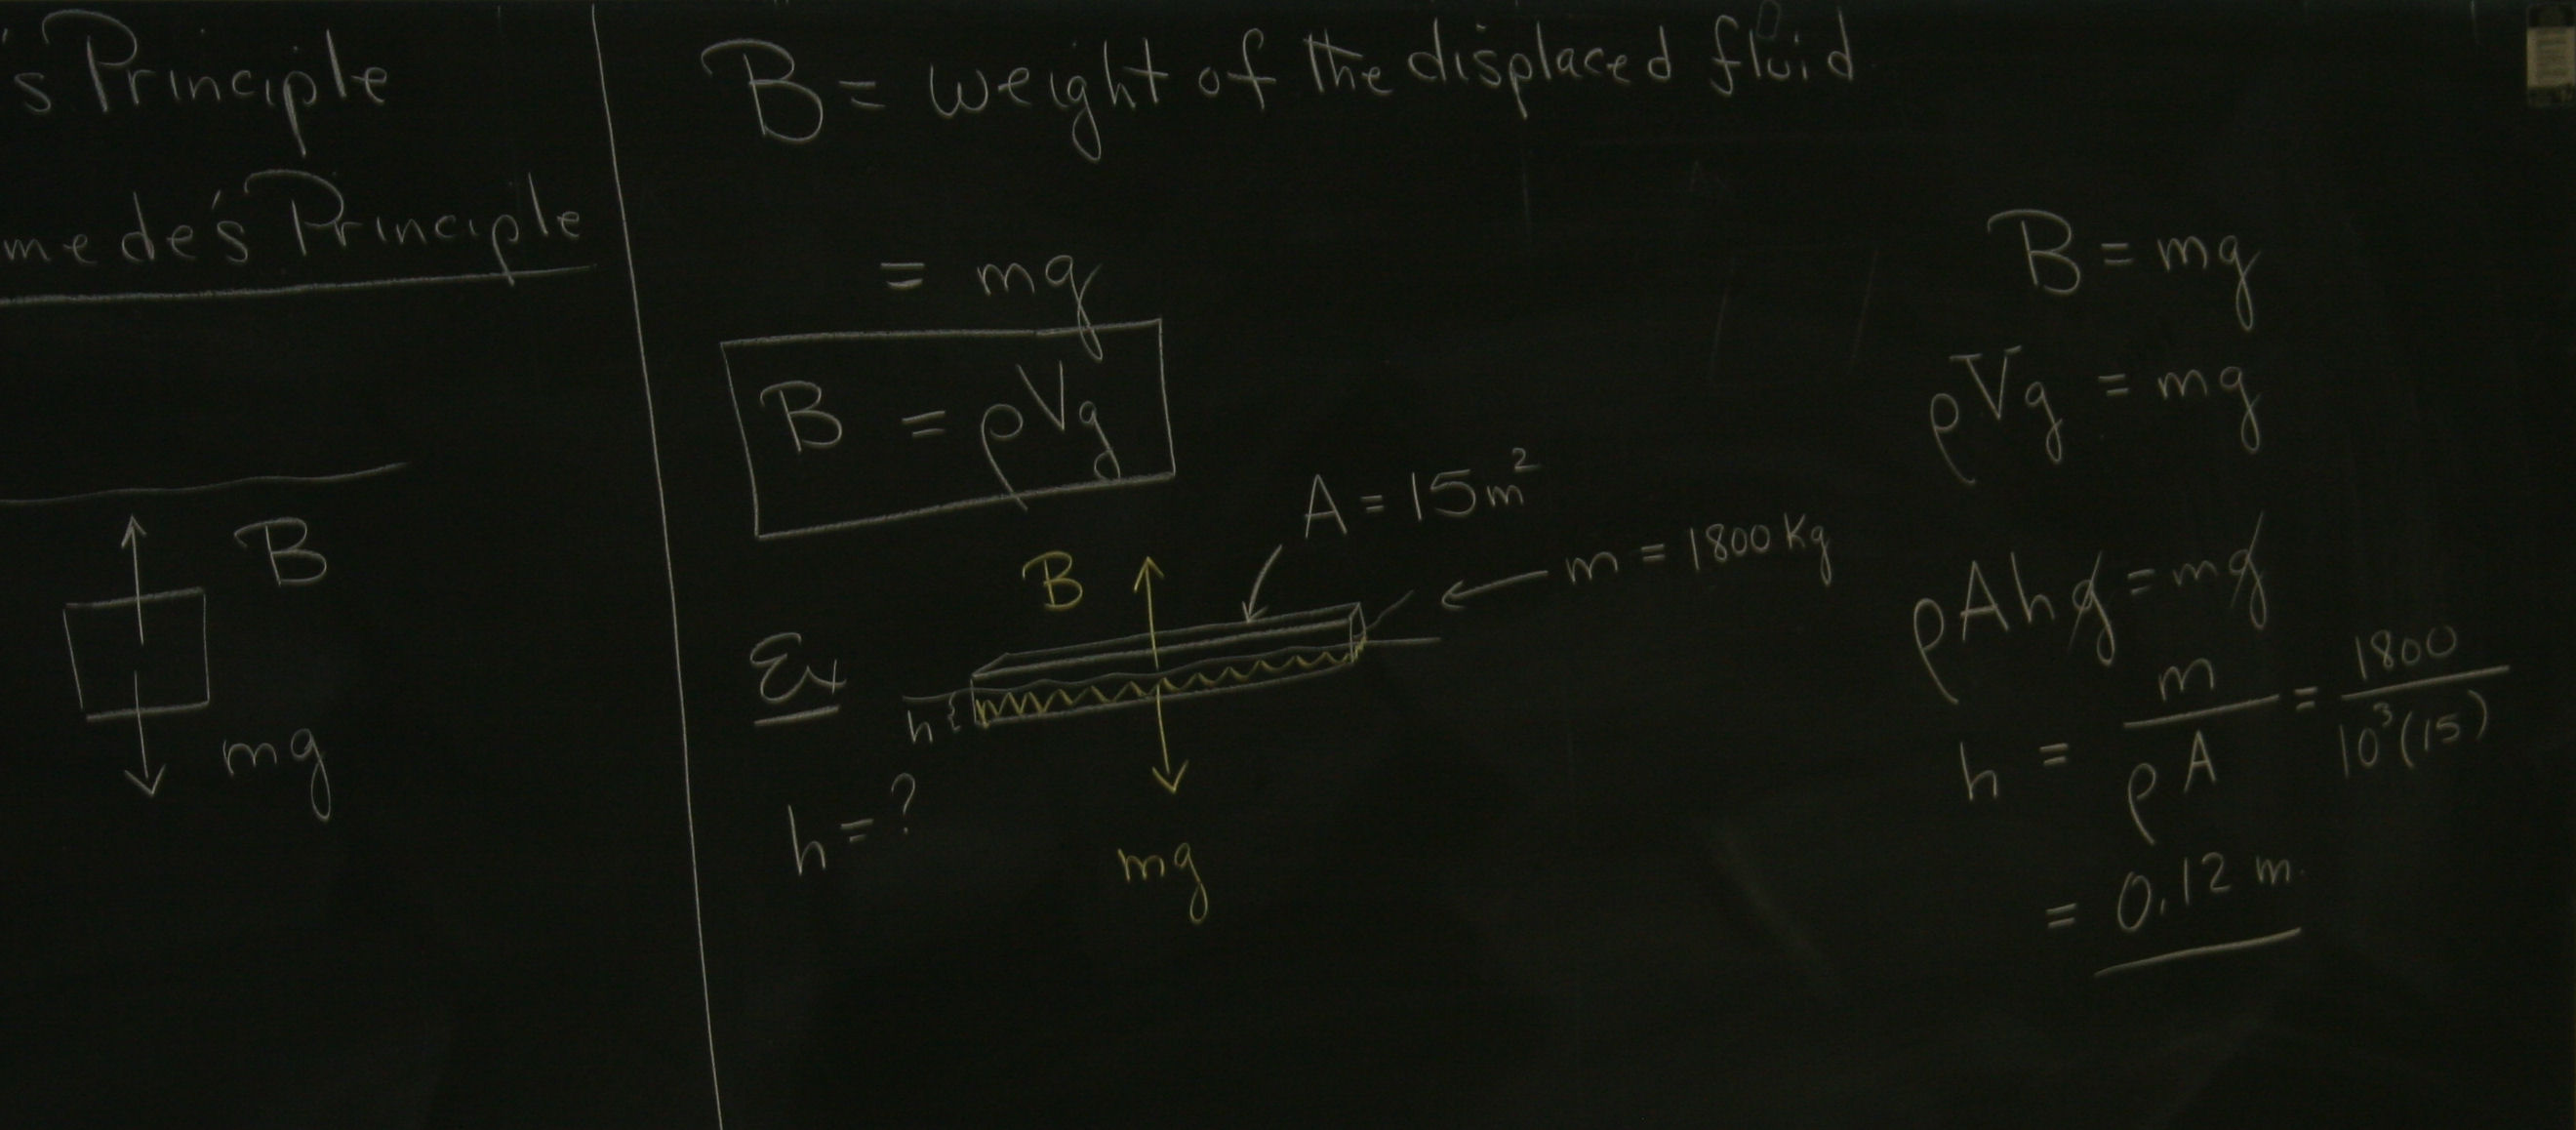 's Principle
mede's Principle
B
mg
B = weight of the displaced fluid
= mg
B = ρVg
A = 15m²
m = 1800 Kg
B
Ex
h
h = ?
mg
B = mg
ρVg = mg
ρAhg = mg
h = m/ρA = 1800/10³(15)
= 0.12 m.